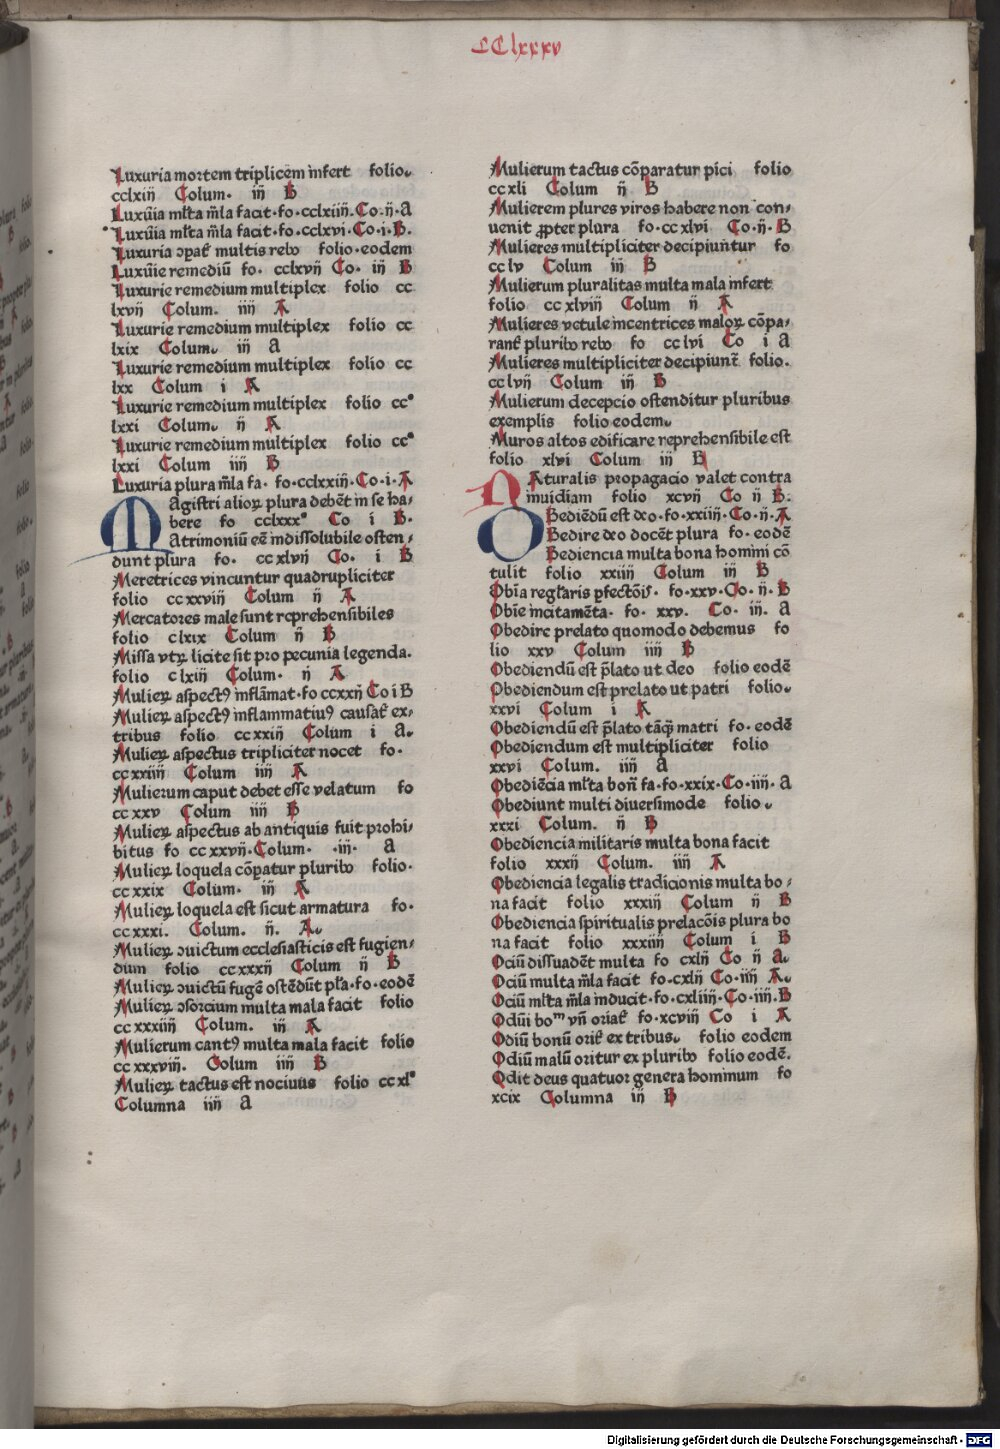 CClxxxv
Luxuria mortem triplicem infert folio.
cclxiij Colum. iij B
Luxūia ml̄ta m̄la facit.fo.cclxiiij.Co.ij.A
Luxūia ml̄ta m̄la facit.fo.cclxvi.Co.i.B.
Luxuria ↄpat̄ multis rebꝰ folio.eodem
Luxūie remediū fo. cclxvij Co. iij B
Luxurie remedium multiplex folio cc
lxvij Colum. iiij A
Luxurie remedium multiplex folio cc
lxix Colum. iij A
Luxurie remedium multiplex folio cc
lxx Colum i A
Luxurie remedium multiplex folio cc
lxxi Colum. ij A
Luxurie remedium multiplex folio cc
lxxi Colum iiij B
Luxuria plura m̄la fa. fo.cclxxiij.Co.i.A
Magistri alioꝝ plura debēt in se ha⸗
bere fo cclxxx Co i B.
Matrimoniū eē indissolubile osten⸗
dunt plura fo. ccxlvij Co. i B
Meretrices vincuntur quadrupliciter
folio ccxxviij Colum ij A
Mercatores male sunt reprehensibiles
folio clxix Colum ij B
Missa vtꝝ licite sit pro pecunia legenda.
folio clxiij Colum. ij A
Mulieꝝ aspectꝰ inflāmat.fo ccxxij Co i B
Mulieꝝ aspectꝰ inflammatiuꝰ causat̄ ex⸗
tribus folio ccxxiij Colum i A.
Mulieꝝ aspectus tripliciter nocet fo.
ccxxiiij Colum iiij A
Mulierum caput debet esse velatum fo
ccxxv Colum iiij B
Mulieꝝ aspectus ab antiquis fuit prohi⸗
bitus fo ccxxvij.Colum. .iij. A
Mulieꝝ loquela cōpatur pluribꝰ folio.
ccxxix Colum. iij A
Mulieꝝ loquela est sicut armatura fo.
ccxxxi. Colum. ij. A.
Mulieꝝ ↄuictum ecclesiasticis est fugien⸗
dum folio ccxxxij Colum ij B
Mulieꝝ ↄuictū fugē ostēdūt pl̄a.fo.eodē
Mulieꝝ ↄsorcium multa mala facit folio
ccxxxiiij Colum. iij A
Mulierum cantꝰ multa mala facit folio
ccxxxviij. Colum iiij B
Mulieꝝ tactus est nociuus folio ccxl
Columna iiij A
Mulierum tactus cōparatur pici folio
ccxli Colum ij B
Mulierem plures viros habere non con⸗
uenit ꝓpter plura fo.ccxlvi Co.ij.B
Mulieres multipliciter decipiuntur fo
cclv Colum iij B
Mulierum pluralitas multa mala infert
folio ccxlviij Colum ij A
Mulieres vetule incentrices maloꝝ cōpa⸗
rant̄ pluribꝰ rebꝰ fo cclvi Co i A
Mulieres multipliciter decipiunt̄ folio.
cclvij Colum iij B
Mulierum decepcio ostenditur pluribus
exemplis folio eodem.
Muros altos edificare reprehensibile est
folio xlvi Colum iij B
Naturalis propagacio valet contra
inuidiam folio xcvij Co ij B.
Obediēdū est deo.fo.xxiiij.Co.ij.A
Obedire deo docēt plura fo.eodē
Obediencia multa bona homini cō
tulit folio xxiiij Colum iij B
Obīa reglaris ꝑfectōīs. fo.xxv.Co.ij.B
Obīe incitamēta. fo. xxv. Co. iij. A
Obedire prelato quomodo debemus fo
lio xxv Colum iiij B
Obediendū est p̄lato ut deo folio eodē
Obediendum est prelato ut patri folio.
xxvi Colum i A
Obediendū est p̄lato tāq̄ matri fo.eodē
Obediendum est multipliciter folio
xxvi Colum. iiij A
Obediēcia ml̄ta bon̄ fa.fo.xxix.Co.iiij.A
Obediunt multi diuersimode folio.
xxxi Colum. ij B
Obediencia militaris multa bona facit
folio xxxij Colum. iiij A
Obediencia legalis tradicionis multa bo⸗
na facit folio xxxiij Colum ij B
Obediencia spiritualis prelacōis plura bo
na facit folio xxxiiij Colum i B
Ociū dissuadēt multa fo cxlij Co ij A.
Ociū multa m̄la facit fo.cxlij Co.iiij A.
Ociū ml̄ta m̄la inducit.fo.cxliiij.Co.iiij.B
Odiū boᵐ vn̄ oriat̄ fo.xcviij Co i A
Odiū bonū orit̄ ex tribus. folio eodem
Odiū malū oritur ex pluribꝰ folio eodē.
Odit deus quatuor genera hominum fo
xcix Columna iij B
Digitalisierung gefördert durch die Deutsche Forschungsgemeinschaft - DFG